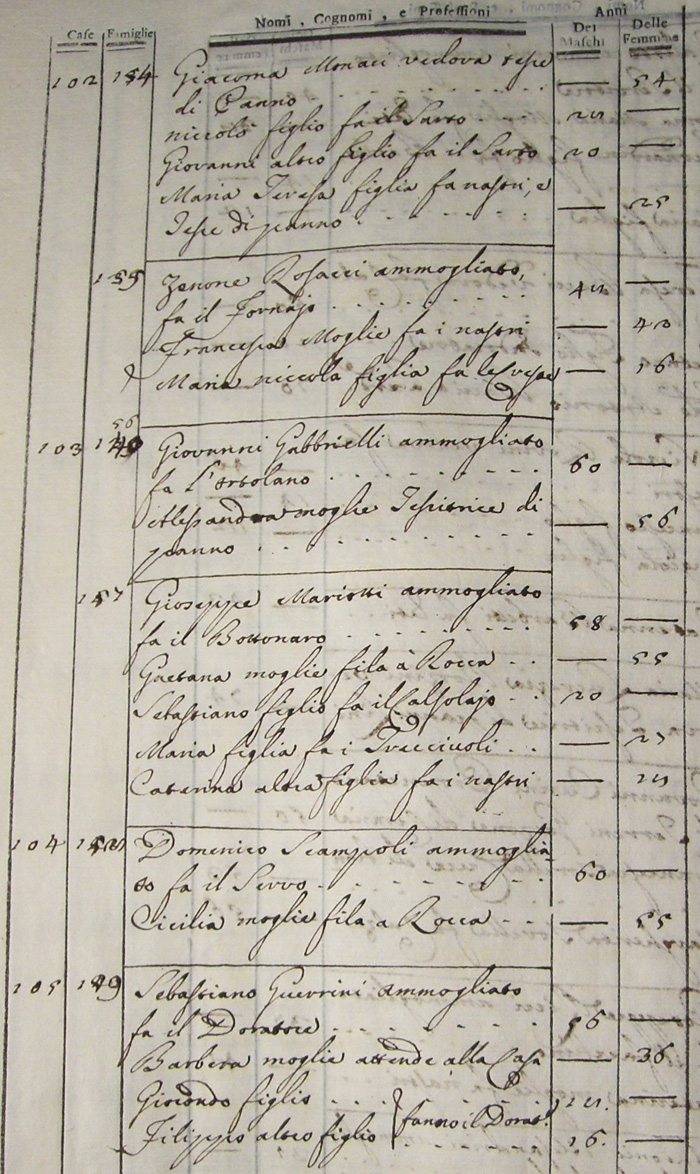 Case Famiglie Nomi, Cognomi, e Professioni Anni Dei Maschi Delle Femmine
102 154 Giacoma Monaci vedova tesse
di Panno — 54
niccolò figlio fa il Sarto 25 —
Giovanni altro figlio fa il Sarto 20 —
Maria Teresa figlia fa nastri, e
Tesse di panno — 25
155 Zenone Rosacci ammogliato,
fa il Fornajo 45 —
Francesca Moglie fa i nastri — 40
Maria niccola figlia fa le — 16
103 56 Giovanni Gabbrielli ammogliato
fa l'ortolano 60 —
Alessandra moglie Tessitrice di
panno — 56
157 Giuseppe Mariotti ammogliato
fa il Bottonaro 58 —
Gaetana moglie fila à Rocca — 55
Sebastiano figlio fa il Calsolajo 20 —
Maria figlia fa i Trecciuoli — 27
Caterina altra figlia fa i nastri —
104 Domenico Scampoli ammoglia
to fa il Servo 60
Cicilia moglie fila a Rocca — 55
105 Sebastiano Guerrini ammogliato
fa il Doratore 56 —
Barbera moglie attende alla Casa — 36
Giocondo figlio —
Filippo altro figlio fanno il Dorat. 16. —